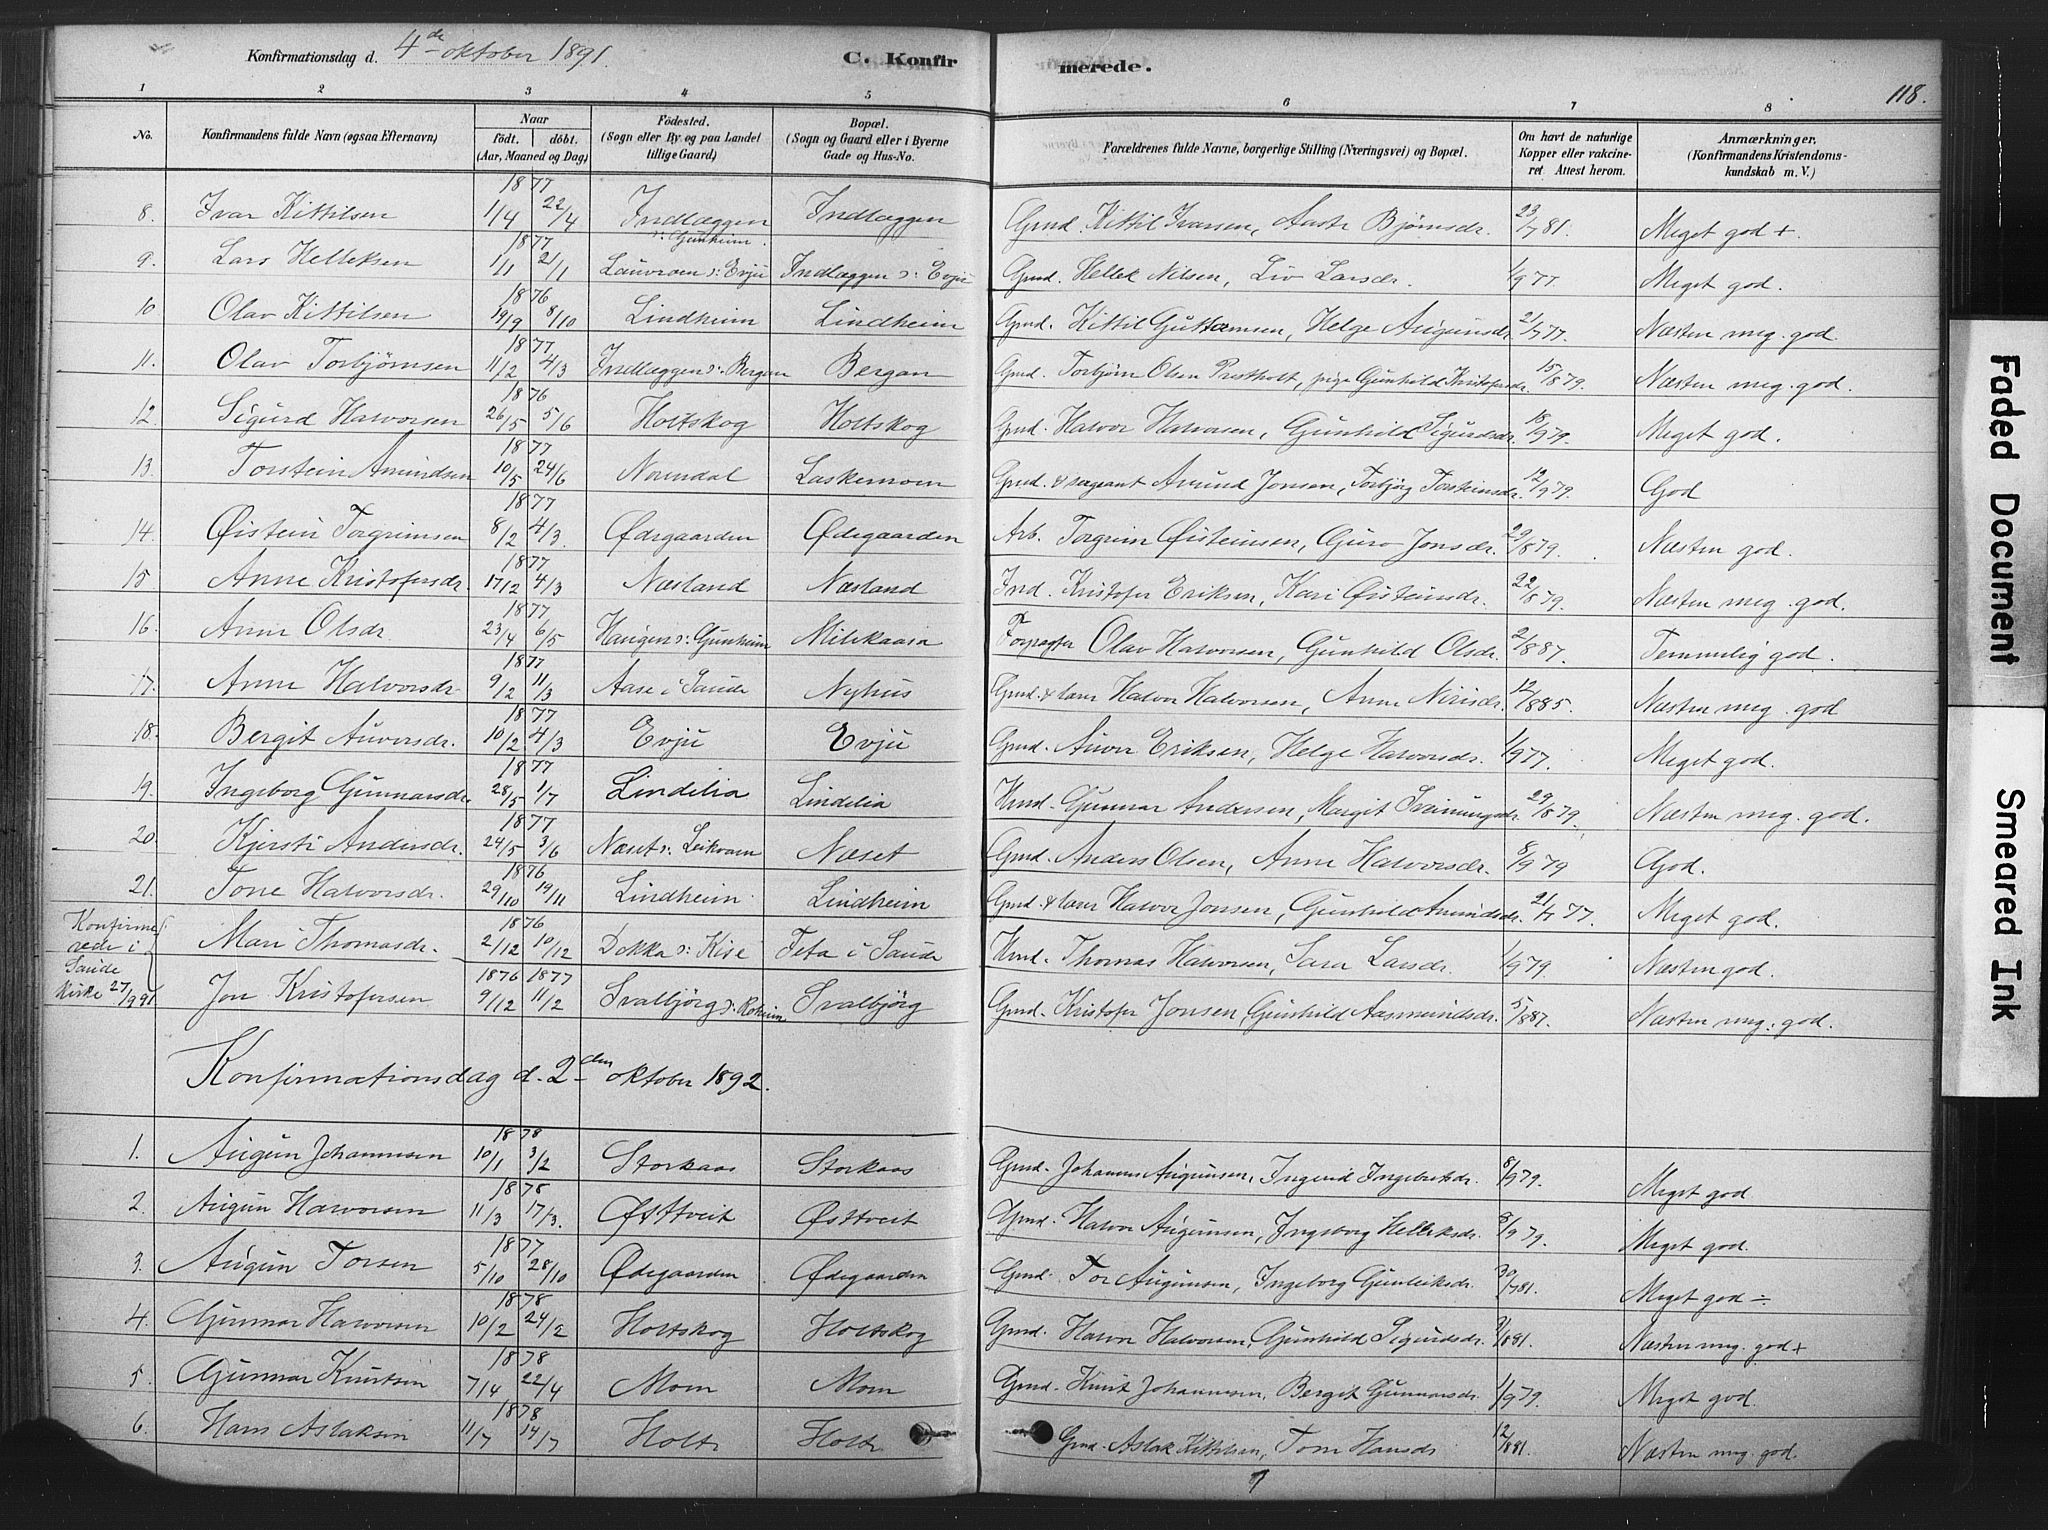 Konfirmationsdag d. 4de oktober 1891. C. Konfirmerede. 118.
1 2 3 4 5 6 7 8
No. Konfirmandens fulde Navn (ogsaa Efternavn) Naar født. døbt. (Aar, Maaned og Dag) Fødested. (Sogn eller By og paa Landet tillige Gaard) Bopæl. (Sogn og Gaard eller i Byerne Gade og Hus-No. Forældrenes fulde Navne, borgerlige Stilling (Næringsvei) og Bopæl. Om havt de naturlige Kopper eller vakcineret Attest herom. Anmærkninger. (Konfirmandens Kristendomskundskab m. V.)
8. Ivar Kittilsen 1877 1/4 22/4 Indlæggen ɔ: Gunheim. Indlæggen Grnd. Kittil Ivarsen, Aaste Bjørnsdr. 23/7 81. Meget god +.
9. Lars Helleksen 1877 1/1 21/1 Lauvroen ɔ: Evju Indlæggen ɔ: Evju Grnd. Hellek Nilsen, Liv Larsdr. 1/9 77. Meget god.
10 Olav Kittilsen 1876 19/9 8/10 Lindheim Lindheim Grnd. Kittil Guttormsen, Helge Augunsdr. 21/7 77. Næsten meg. god
11. Olav Torbjørnsen 1877 11/2 4/3 Indlæggen ɔ: Bergan Bergan Grnd. Torbjørn Olsen Prestholt, pige Gunhild Kristofersdr. 15/8 79. Næsten meg. god.
12. Sigurd Halvorsen 1876 26/5 5/6 Holtskog Holtskog Grnd. Halvor Halvorsen, Gunhild Sigurdsdr. 18/9 79. Meget god.
13. Torstein Amundsen 1877 10/5 24/6 Norndal Laskemoen Grnd. & sergeant Amund Jonsen, Torbjørg Torsteinsdr. 12/9 79. God
14. Øistein Torgrimsen 1877 8/2 4/3. Ødegaarden Ødegaarden Arb. Torgrim Øisteinsen, Guro Jonsdr. 22/8 79. Næsten god.
15 Anne Kristofersdr. 1877 17/2 4/3 Næsland Næsland Ind. Kristofer Eriksen, Kari Øisteinsdr. 22/8 79. Næsten meg. god.
16. Anne Olsdr. 1877 23/4 6/5 Haugen ɔ: Gunheim Milekaasa Forpagter Olav Halvorsen, Gunhild Olsdr. 2/8 87. Temmelig god.
17. Anne Halvorsdr. 1877 9/2 11/3 Aase i Saude Nyhus Grnd. & lærer Halvor Halvorsen, Anne Nirisdr. 12/8 85. Næsten meg. god
18. Bergit Auversdr. 1877 10/2 4/3 Evju Evju Grnd. Auver Eriksen, Helge Halvorsdr. 1/9 77. Meget god.
19. Ingeborg Gunnarsdr. 1877 28/5 1/7 Lindelia Lindelia Hmd. Gunnar Andersen, Margit Sveinungsdr. 29/8 79. Næsten meg. god.
20 Kjersti Andersdr. 1877 24/5 3/6 Næset ɔ: Leikvam Næset Grnd. Anders Olsen, Anne Halvorsdr. 8/9 79 God.
21. Tone Halvorsdr. 1876 29/10 19/11 Lindheim Lindheim Grnd. & lærer Halvor Jonsen, Gunhild Amundsdr. 21/7 77. Meget god.
Konfirmerede i Saude kirke 27/9 91.
Mari Thomasdr. 1876 2/12 10/12 Dekka ɔ: Kise Feta i Saude Hmd. Thomas Halvorsen, Sara Larsdr. 1/9 79 Næsten god.
Jon Kristofersen 1876 9/12 1877 11/2 Svalbjørg ɔ: Roheim Svalbjørg Grnd. Kristofer Jonsen, Gunhild Aasmundsdr. 5/8 87. Næsten meg. god.
Konfirmationsdag d. 2den oktober 1892.
1. Augun Johannesen 1878 10/1 3/2 Storkaas Storkaas Grnd. Johannes Augunsen, Ingerid Ingebretsdr. 8/9 79. Meget god
2. Augun Halvorsen 1878 11/3 17/3. Østtveit Østtveit Grnd. Halvor Augunsen, Ingeborg Helleksdr. 8/9 79. Meget god.
3. Augun Torsen 1877 5/10 28/10 Ødegaarden Ødegaarden Grnd. Tor Augunsen, Ingeborg Gunleiksdr. 30/7 81. Meget god ÷
4. Gunnar Halvorsen 1878 10/2 24/2 Holtskog Holtskog Grnd. Halvor Halvorsen, Gunhild Sigurdsdr. 9/8 81. Næsten meg. god +
5. Gunnar Knutsen 1878 7/4 22/4 Moen Moen Grnd. Knut Johannesen, Bergit Gunnarsdr. 1/9 79. Meget god.
6. Hans Aslaksen 1878 11/7 14/7 Holte Holte Grnd. Aslak Kittilsen, Tone Hansdr. 12/8 81. Næsten meg. god
Faded Document
Smeared Ink